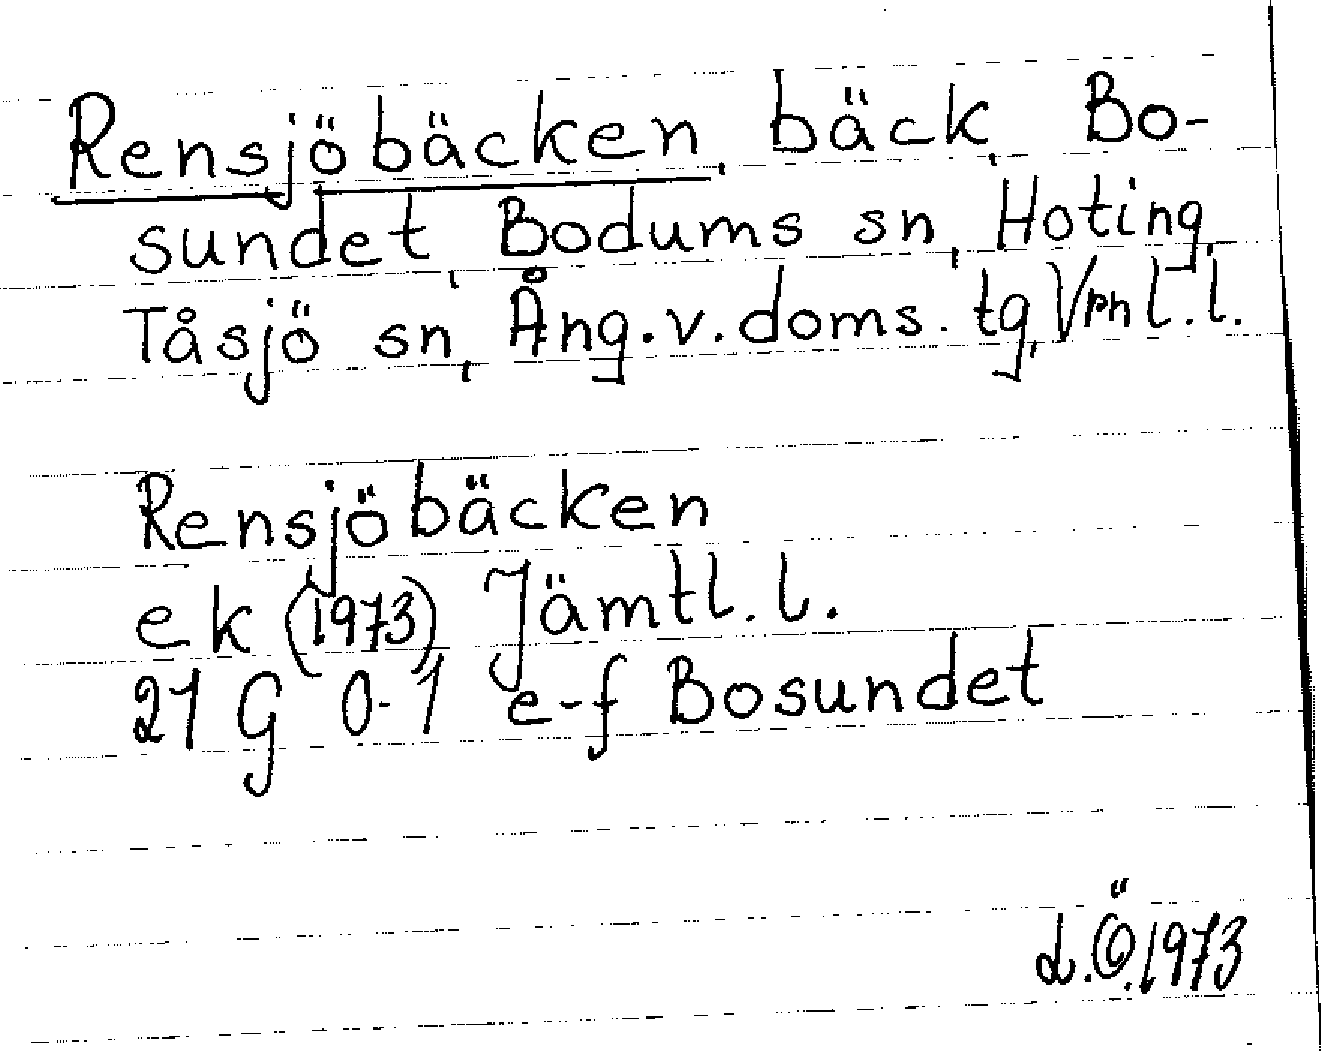 Rensjöbäcken, bäck, Bo-
sundet, Bodums sn, Hoting,
Tåsjö sn, Ång.v.doms.tg, Vrnl.l.
Rensjöbäcken
ek (1973) Jämtl.l.
21 G 0-1 e-f Bosundet
L.Ö.1973